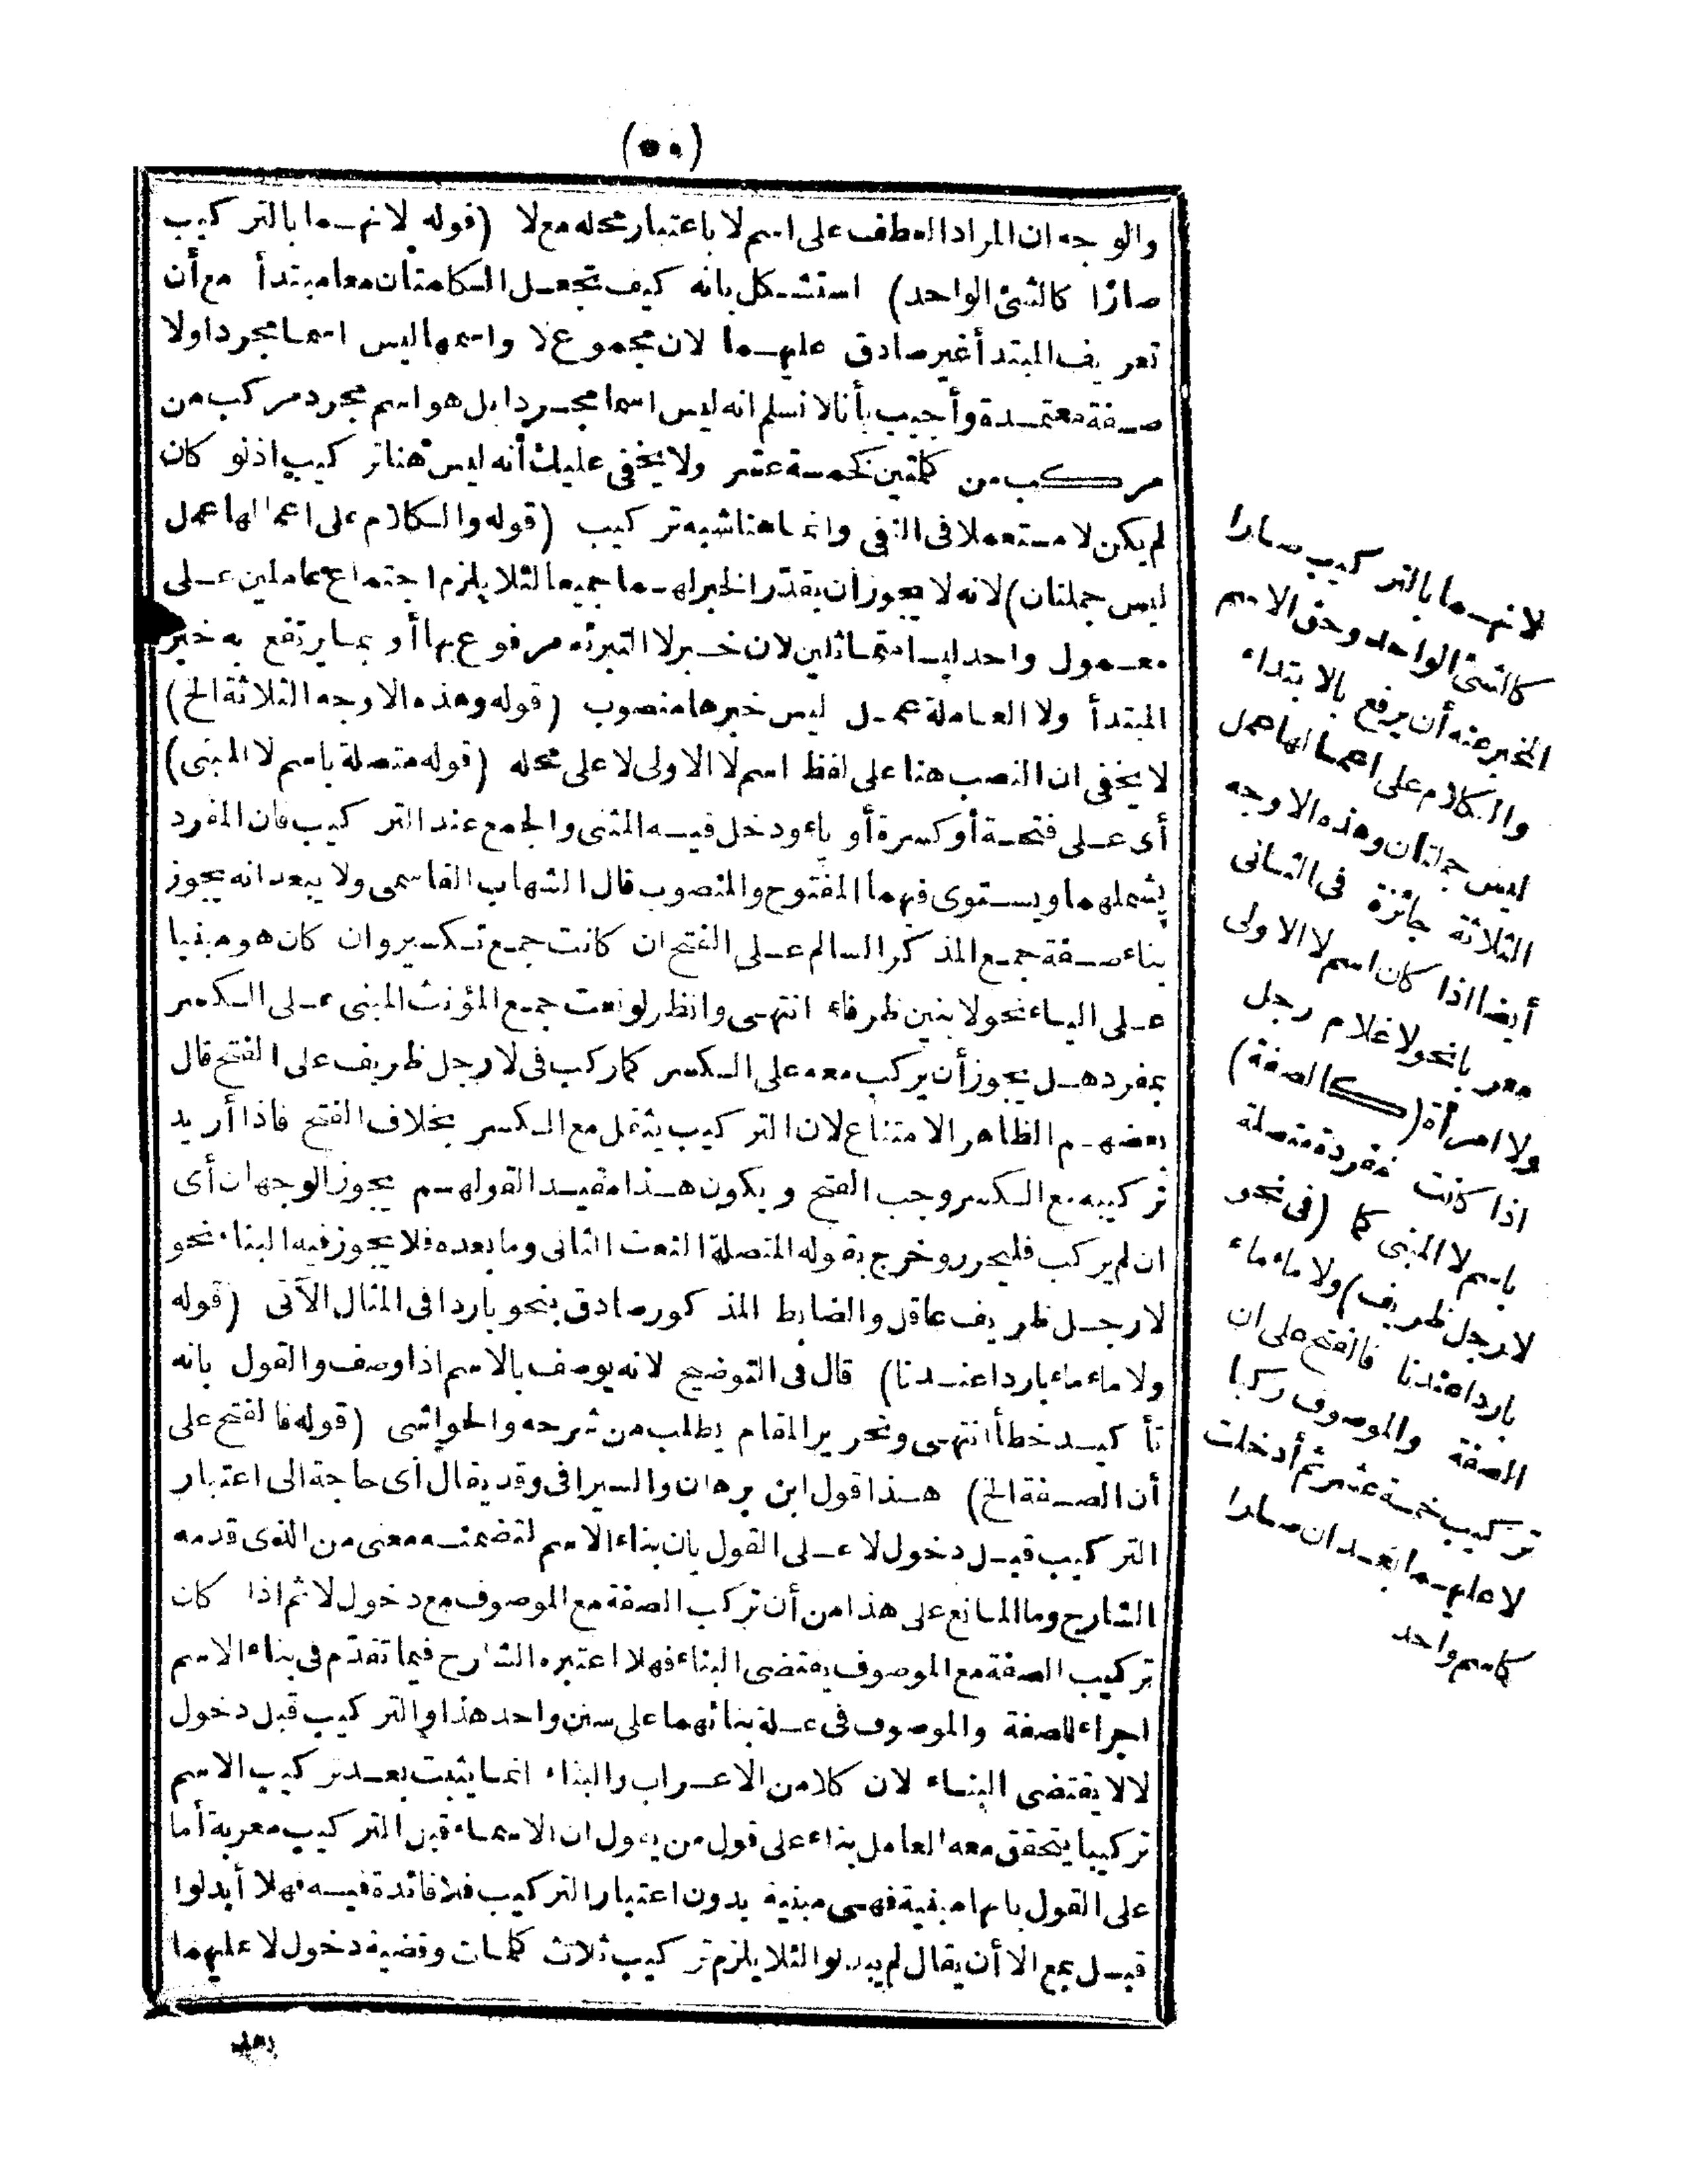 (٥٠)
والوجه ان المراد العطف على اسم لا باعتبار محله مع لا (قوله لانهما بالتركيب
صارا كالشئ الواحد) استشكل بانه كيف تجعل الكلمتان معا مبتدأ مع أن
تعريف المبتدأ غير صادق عليهما لان مجموع لا واسمها ليس اسما مجردا ولا
صفة معتمدة وأجيب بأنا لا نسلم انه ليس اسما مجردا بل هو اسم مجرد مركب من
مركب من كلمتين كخمسة عشر ولا يخفى عليك أنه ليس هنا تركيب اذ لو كان
لم يكن لا مستعملا فى النفى وانما هنا شبه تركيب (قوله والكلام على اعمالها عمل
ليس جملتان) لانه لا يجوز أن يقدّر الخبر لهما جميعا لئلا يلزم اجتماع عاملين على
معمول واحد ليسا متماثلين لان خبر لا التبرئه مرفوع بها أو بما يرتفع به خبر
المبتدأ ولا العاملة عمل ليس خبرها منصوب (قوله وهذه الاوجه الثلاثة الخ)
لا يخفى ان النصب هنا على لفظ اسم لا الاولى لا على محله (قوله متصلة باسم لا المبنى)
أى على فتحة أو كسرة أو ياء ودخل فيه المثنى والجمع عند التركيب فان المفرد
يشملهما ويستوى فيهما المفتوح والمنصوب قال الشهاب القاسمى ولا يبعد انه يجوز
بناء صفة جمع المذكر السالم على الفتح ان كانت جمع تكسير وان كان هو مبنيا
على الياء نحو لا بنين ظرفاء انتهى وانظر لو نعت جمع المؤنث المبنى على الكسر
بمفرد هل يجوز أن يركب معه على الكسر كما ركب فى لا رجل ظريف على الفتح قال
بعضهم الظاهر الامتناع لان التركيب يثقل مع الكسر بخلاف الفتح فاذا أريد
تركيبه مع الكسر وجب الفتح ويكون هذا مقيدا لقولهم يجوز الوجهان أى
ان لم يركب فليحرر وخرج بقوله المتصلة النعت الثانى وما بعده فلا يجوز فيه البناء نحو
لا رجل ظريف عاقل والضابط المذكور صادق بنحو باردا فى المثال الآتى (قوله
ولا ماء ماء باردا عندنا) قال فى التوضيح لانه يوصف بالاسم اذا وصف والقول بانه
تأكيد خطأ انتهى وتحرير المقام يطلب من شرحه والحواشى (قوله فالفتح على
أن الصفة الخ) هذا قول ابن برهان والسيرافى وقد يقال أى حاجة الى اعتبار
التركيب قبل دخول لا على القول بان بناء الاسم لتضمنه معنى من الذى قدمه
الشارح وما المانع على هذا من أن تركب الصفة مع الموصوف مع دخول لا ثم اذا كان
تركيب الصفة مع الموصوف يقتضى البناء فهلا اعتبره الشارح فيما تقدّم فى بناء الاسم
اجراء للصفة والموصوف فى علة بنائهما على سنن واحد هذا والتركيب قبل دخول
لا لا يقتضى البناء لان كلا من الاعراب والبناء انما يثبت بعد تركيب الاسم
تركيبا يتحقق معه العامل بناء على قول من يقول ان الاسماء قبل التركيب معربة أما
على القول بانها مبنية فهى مبنية بدون اعتبار التركيب فلا فائدة فيه فهلا أبدلوا
قبل بمع الا أن يقال لم يبدلوا لئلا يلزم تركيب ثلاث كلمات وقضية دخول لا عليهما
لانهما بالتركيب صارا
كالشئ الواحد وحق الاسم
المخبر عنه أن يرفع بالابتداء
والكلام على اعمالها عمل
ليس جملتان وهذه الاوجه
الثلاثة جائزة فى الثانى
أيضا اذا كان اسم لا الاولى
معربا نحو لا غلام رجل
ولا امرأة (كالصفة)
اذا كانت مفردة متصلة
باسم لا المبنى كما (فى نحو
لا رجل ظريف) ولا ماء ماء
باردا عندنا فالفتح على ان
الصفة والموصوف ركبا
تركيب خمسة عشر ثم أدخلت
لا عليهما بعد ان صارا
كاسم واحد